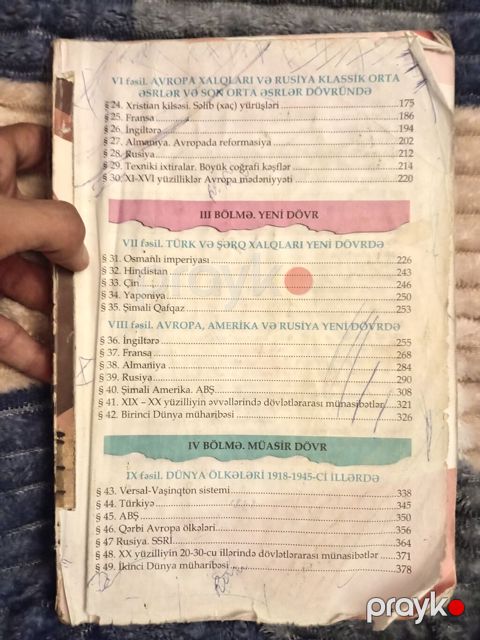 VI fəsil. AVROPA XALQLARI VƏ RUSİYA KLASSİK ORTA
ƏSRLƏR VƏ SON ORTA ƏSRLƏR DÖVRÜNDƏ
§ 24. Xristian kilsəsi. Səlib (xaç) yürüşləri 175
§ 25. Fransa 186
§ 26. İngiltərə 194
§ 27. Almaniya. Avropada reformasiya 202
§ 28. Rusiya 212
§ 29. Texniki ixtiralar. Böyük coğrafi kəşflər 214
§ 30. XI-XVI yüzilliklər Avropa mədəniyyəti 220
III BÖLMƏ. YENİ DÖVR
VII fəsil. TÜRK VƏ ŞƏRQ XALQLARI YENİ DÖVRDƏ
§ 31. Osmanlı imperiyası 226
§ 32. Hindistan 243
§ 33. Çin 246
§ 34. Yaponiya 250
§ 35. Şimali Qafqaz 253
prayko
VIII fəsil. AVROPA, AMERİKA VƏ RUSİYA YENİ DÖVRDƏ
§ 36. İngiltərə 255
§ 37. Fransa 268
§ 38. Almaniya 284
§ 39. Rusiya 290
§ 40. Şimali Amerika. ABŞ 308
§ 41. XIX – XX yüzilliyin əvvəllərində dövlətlərarası münasibətlər 321
§ 42. Birinci Dünya müharibəsi 326
IV BÖLMƏ. MÜASİR DÖVR
IX fəsil. DÜNYA ÖLKƏLƏRİ 1918-1945-Cİ İLLƏRDƏ
§ 43. Versal-Vaşinqton sistemi 338
§ 44. Türkiyə 345
§ 45. ABŞ 350
§ 46. Qərbi Avropa ölkələri 356
§ 47 Rusiya. SSRİ 364
§ 48. XX yüzilliyin 20-30-cu illərində dövlətlərarası münasibətlər 371
§ 49. İkinci Dünya müharibəsi 378
prayko